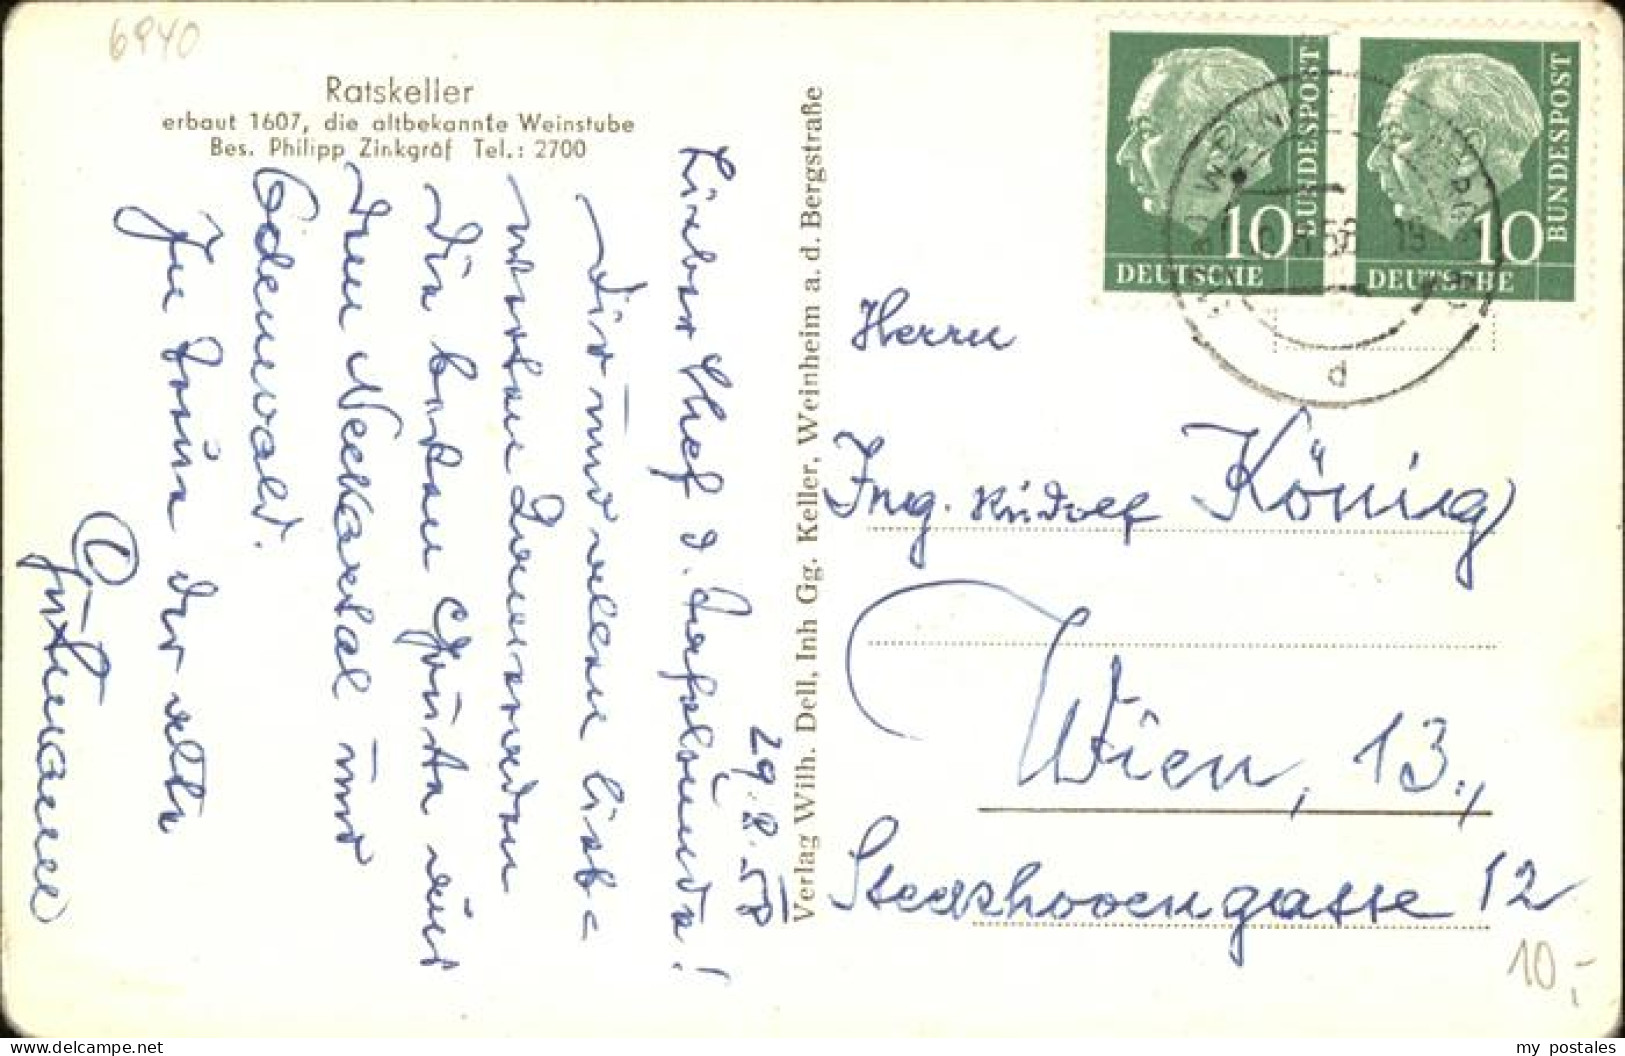 6940
Ratskeller
erbaut 1607, die altbekannte Weinstube
Bes. Philipp Zinkgräf Tel.: 2700
29.8.58
Lieber Chef d. Tafelrunde!
Dir und allen lieb=
werten
die besten Grüße aus
dem Neckartal und
Odenwald.
In Treue der alte
Gutmann
Verlag Wilh. Dell, Inh Gg. Keller, Weinheim a. d. Bergstraße
10
DEUTSCHE
BUNDESPOST
10
DEUTSCHE
BUNDESPOST
d
Herrn
Ing. Rudolf König
Wien, 13.,
gasse 12
10,-
my postales
delcampe.net